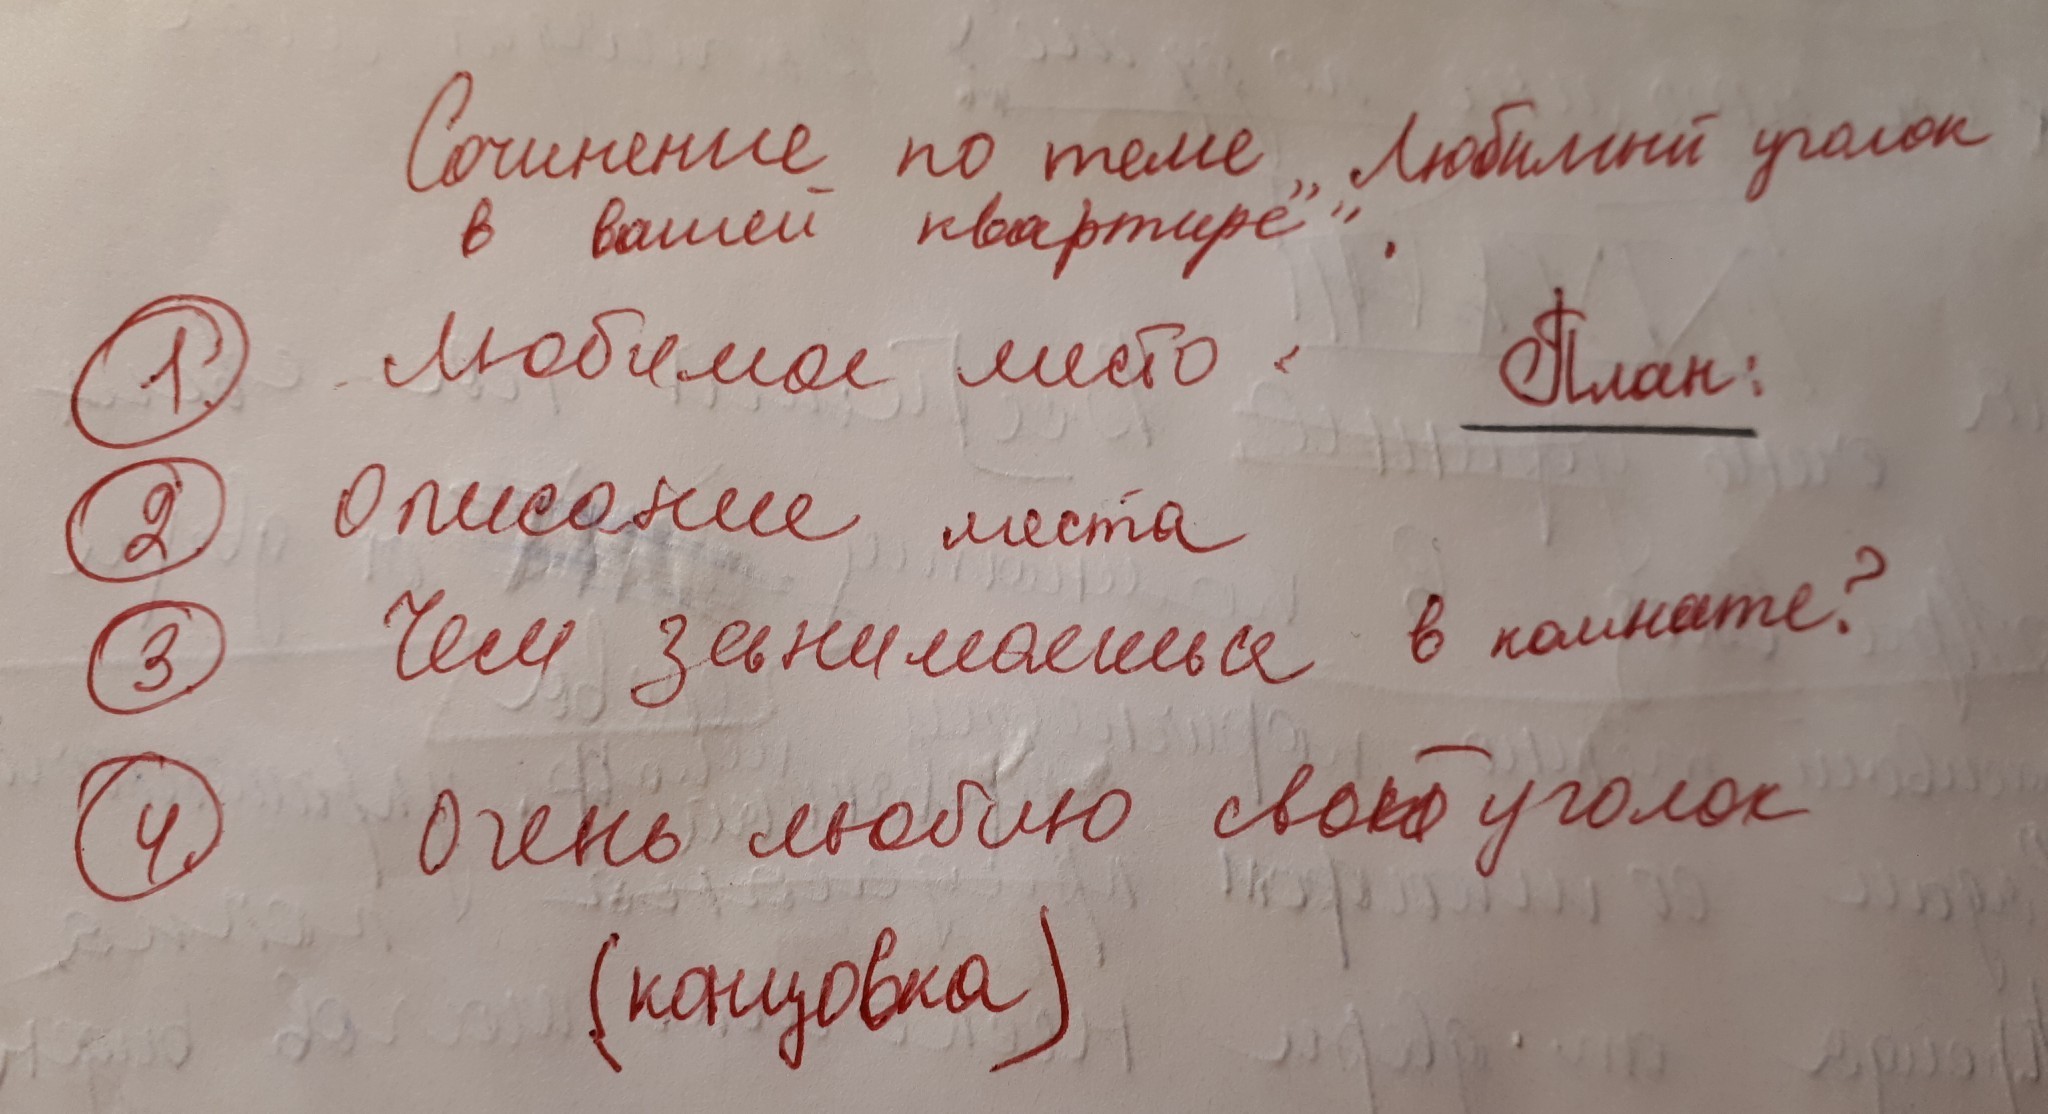 Сочинение по теме „Любимый уголок
в вашей квартире"".
План:
1. Любимое место.
2 Описание места
3 Чем занимаешься в комнате?
4. Очень люблю свой уголок
(концовка)